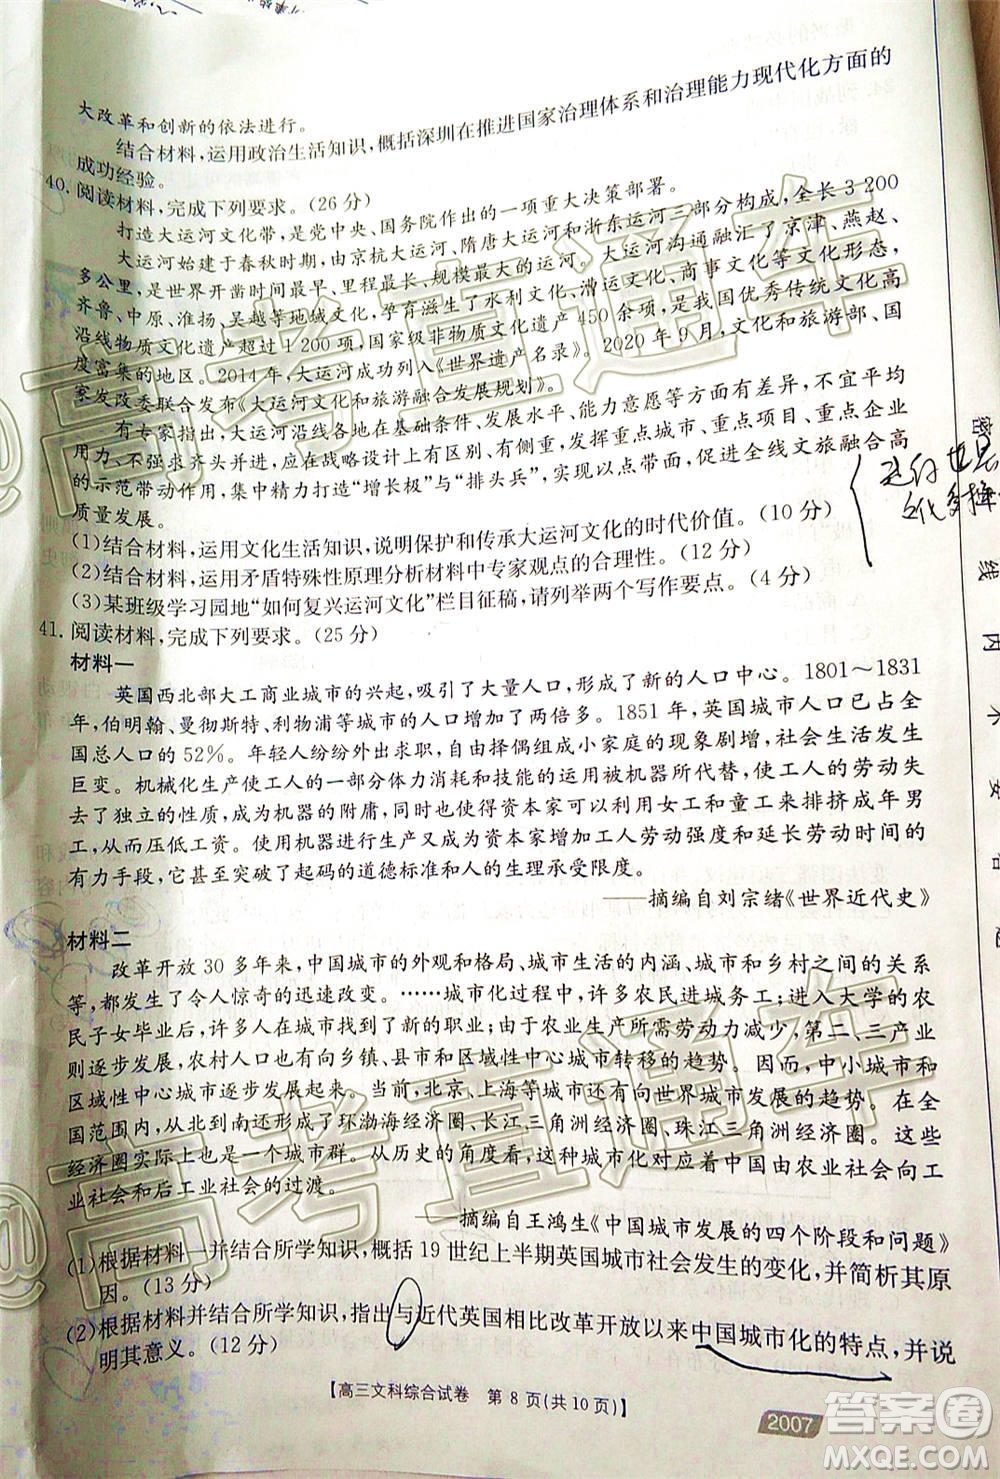 大改革和创新的依法进行。
结合材料，运用政治生活知识，概括深圳在推进国家治理体系和治理能力现代化方面的
成功经验。
40. 阅读材料，完成下列要求。（26 分）
打造大运河文化带，是党中央、国务院作出的一项重大决策部署。
大运河始建于春秋时期，由京杭大运河、隋唐大运河和浙东运河三部分构成，全长 3 200
多公里，是世界开凿时间最早、里程最长、规模最大的运河。大运河沟通融汇了京津、燕赵、
齐鲁、中原、淮扬、吴越等地域文化，孕育滋生了水利文化、漕运文化、商事文化等文化形态，
沿线物质文化遗产超过 1 200 项、国家级非物质文化遗产 450 余项，是我国优秀传统文化高
度富集的地区。2014 年，大运河成功列入《世界遗产名录》。2020 年 9 月，文化和旅游部、国
家发改委联合发布《大运河文化和旅游融合发展规划》。
有专家指出，大运河沿线各地在基础条件、发展水平、能力意愿等方面有差异，不宜平均
用力、不强求齐头并进，应在战略设计上有区别、有侧重，发挥重点城市、重点项目、重点企业
的示范带动作用，集中精力打造“增长极”与“排头兵”，以点带面，促进全线文旅融合高
质量发展。
(1)结合材料，运用文化生活知识，说明保护和传承大运河文化的时代价值。（10 分）
(2)结合材料，运用矛盾特殊性原理分析材料中专家观点的合理性。（12 分）
(3)某班级学习园地“如何复兴运河文化”栏目征稿，请列举两个写作要点。（4 分）
41. 阅读材料，完成下列要求。（25 分）
材料一
英国西北部大工商业城市的兴起，吸引了大量人口，形成了新的人口中心。1801～1831
年，伯明翰、曼彻斯特、利物浦等城市的人口增加了两倍多。1851 年，英国城市人口已占全
国总人口的 52%。年轻人纷纷外出求职，自由择偶组成小家庭的现象剧增，社会生活发生
巨变。机械化生产使工人的一部分体力消耗和技能的运用被机器所代替，使工人的劳动失
去了独立的性质，成为机器的附庸，并有可能使得资本家利用女工和童工来排挤成年男
工，从而压低工资。使用机器进行生产又成为资本家增加工人劳动强度和延长劳动时间的
有力手段，它甚至突破了起码的道德标准和人的生理承受限度。
——摘编自刘宗绪《世界近代史》
材料二
改革开放 30 多年来，中国城市的外观和格局、城市生活的内涵、城市和乡村之间的关系
等，都发生了令人惊奇的迅速改变。……城市化过程中，许多农民进城务工；进入大学的农
民子女毕业后，许多人在城市找到了新的职业；由于农业生产所需劳动力减少，第二、三产业
则迅速发展起来，农村人口也有向乡镇、县市和区域性中心城市转移的趋势。中小城市有向
区域性中心城市发展的趋势。当前，北京、上海等城市有向世界城市发展的趋势。在全
国范围内，从北到南还形成了环渤海经济圈、长江三角洲经济圈、珠江三角洲经济圈。这些
经济圈实际上也是一个城市群。从历史的角度看，这种城市化对应着中国由农业社会向工
业社会和后工业社会的过渡。
——摘编自王鸿生《中国城市发展的四个阶段和问题》
(1)根据材料一并结合所学知识，概括 19 世纪上半期英国城市社会发生的变化，并简析其原
因。（13 分）
(2)根据材料并结合所学知识，指出与近代英国相比改革开放以来中国城市化的特点，并说
明其意义。（12 分）
【高三文科综合试卷 第 8 页（共 10 页）】
2007
答案圈
MXQE.COM
@高考直通车
@高考直通车
密
线
内
不
要
答